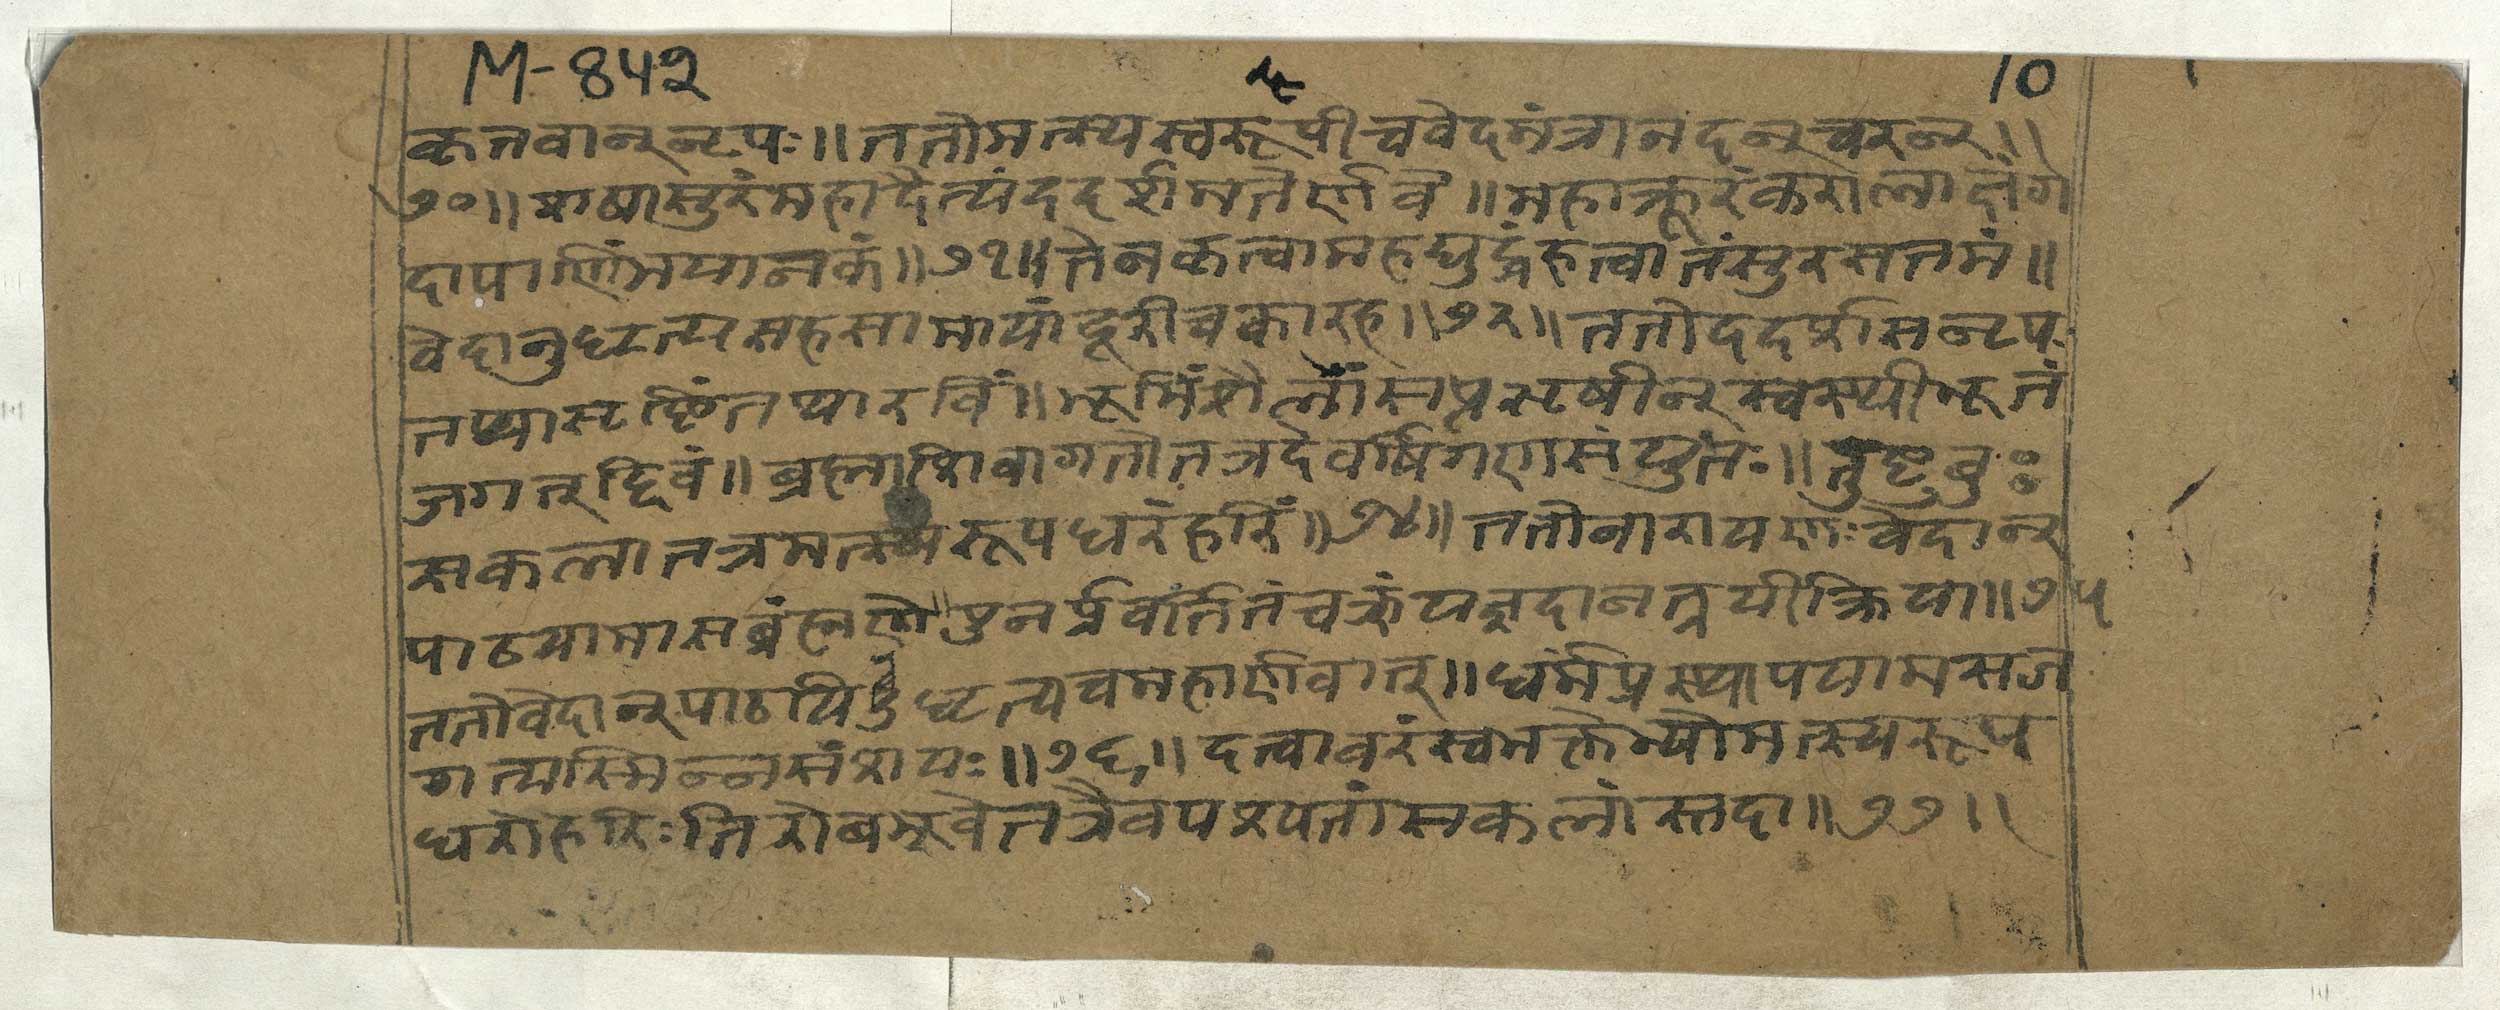 M-842 10
कृतवान्नृपः॥ततोमत्स्यस्वरूपीचवेदमंत्रानदन्चरन्॥
७०॥माषासुरंमहादैत्यंददर्शमतेर्णवे॥महाक्रूरंकरालाक्षंग
दापाणिंभयानकं॥७१॥तेनकृत्वामहयुद्धंहत्वातंसुरसत्तमं॥
वेदानुधृत्यसहसामायांदूरीचकारह॥७२॥ततोददर्शसनृपः
तप्यासृष्टिंतप्यारविं॥भूमिंशैलांसप्तऋषीन्स्वस्थीभूतं
जगत्द्दिवं॥ब्रह्माशिवागतौतत्रदेवर्षिगणसंयुतः॥तुष्टुवुः
सकलातत्रमत्स्यरूपधरंहरिं॥७४॥ततोनारायणःवेदान्
पाठयामासब्रंह्मणे॥पुनर्प्रवर्त्तितंचक्रंयज्ञदानत्रयीक्रिया॥७५
ततोवेदान्पाठयिउधृत्यचमहार्णवात्॥धर्मंप्रस्थापयामसज
गत्यास्मिन्नसंशयः॥७६॥दत्वावरंस्वभक्तेभ्योमत्स्यरूप
धरोहरिःतिरोबभूवेतत्रैवपश्यतांसकलांस्तदा॥७७॥